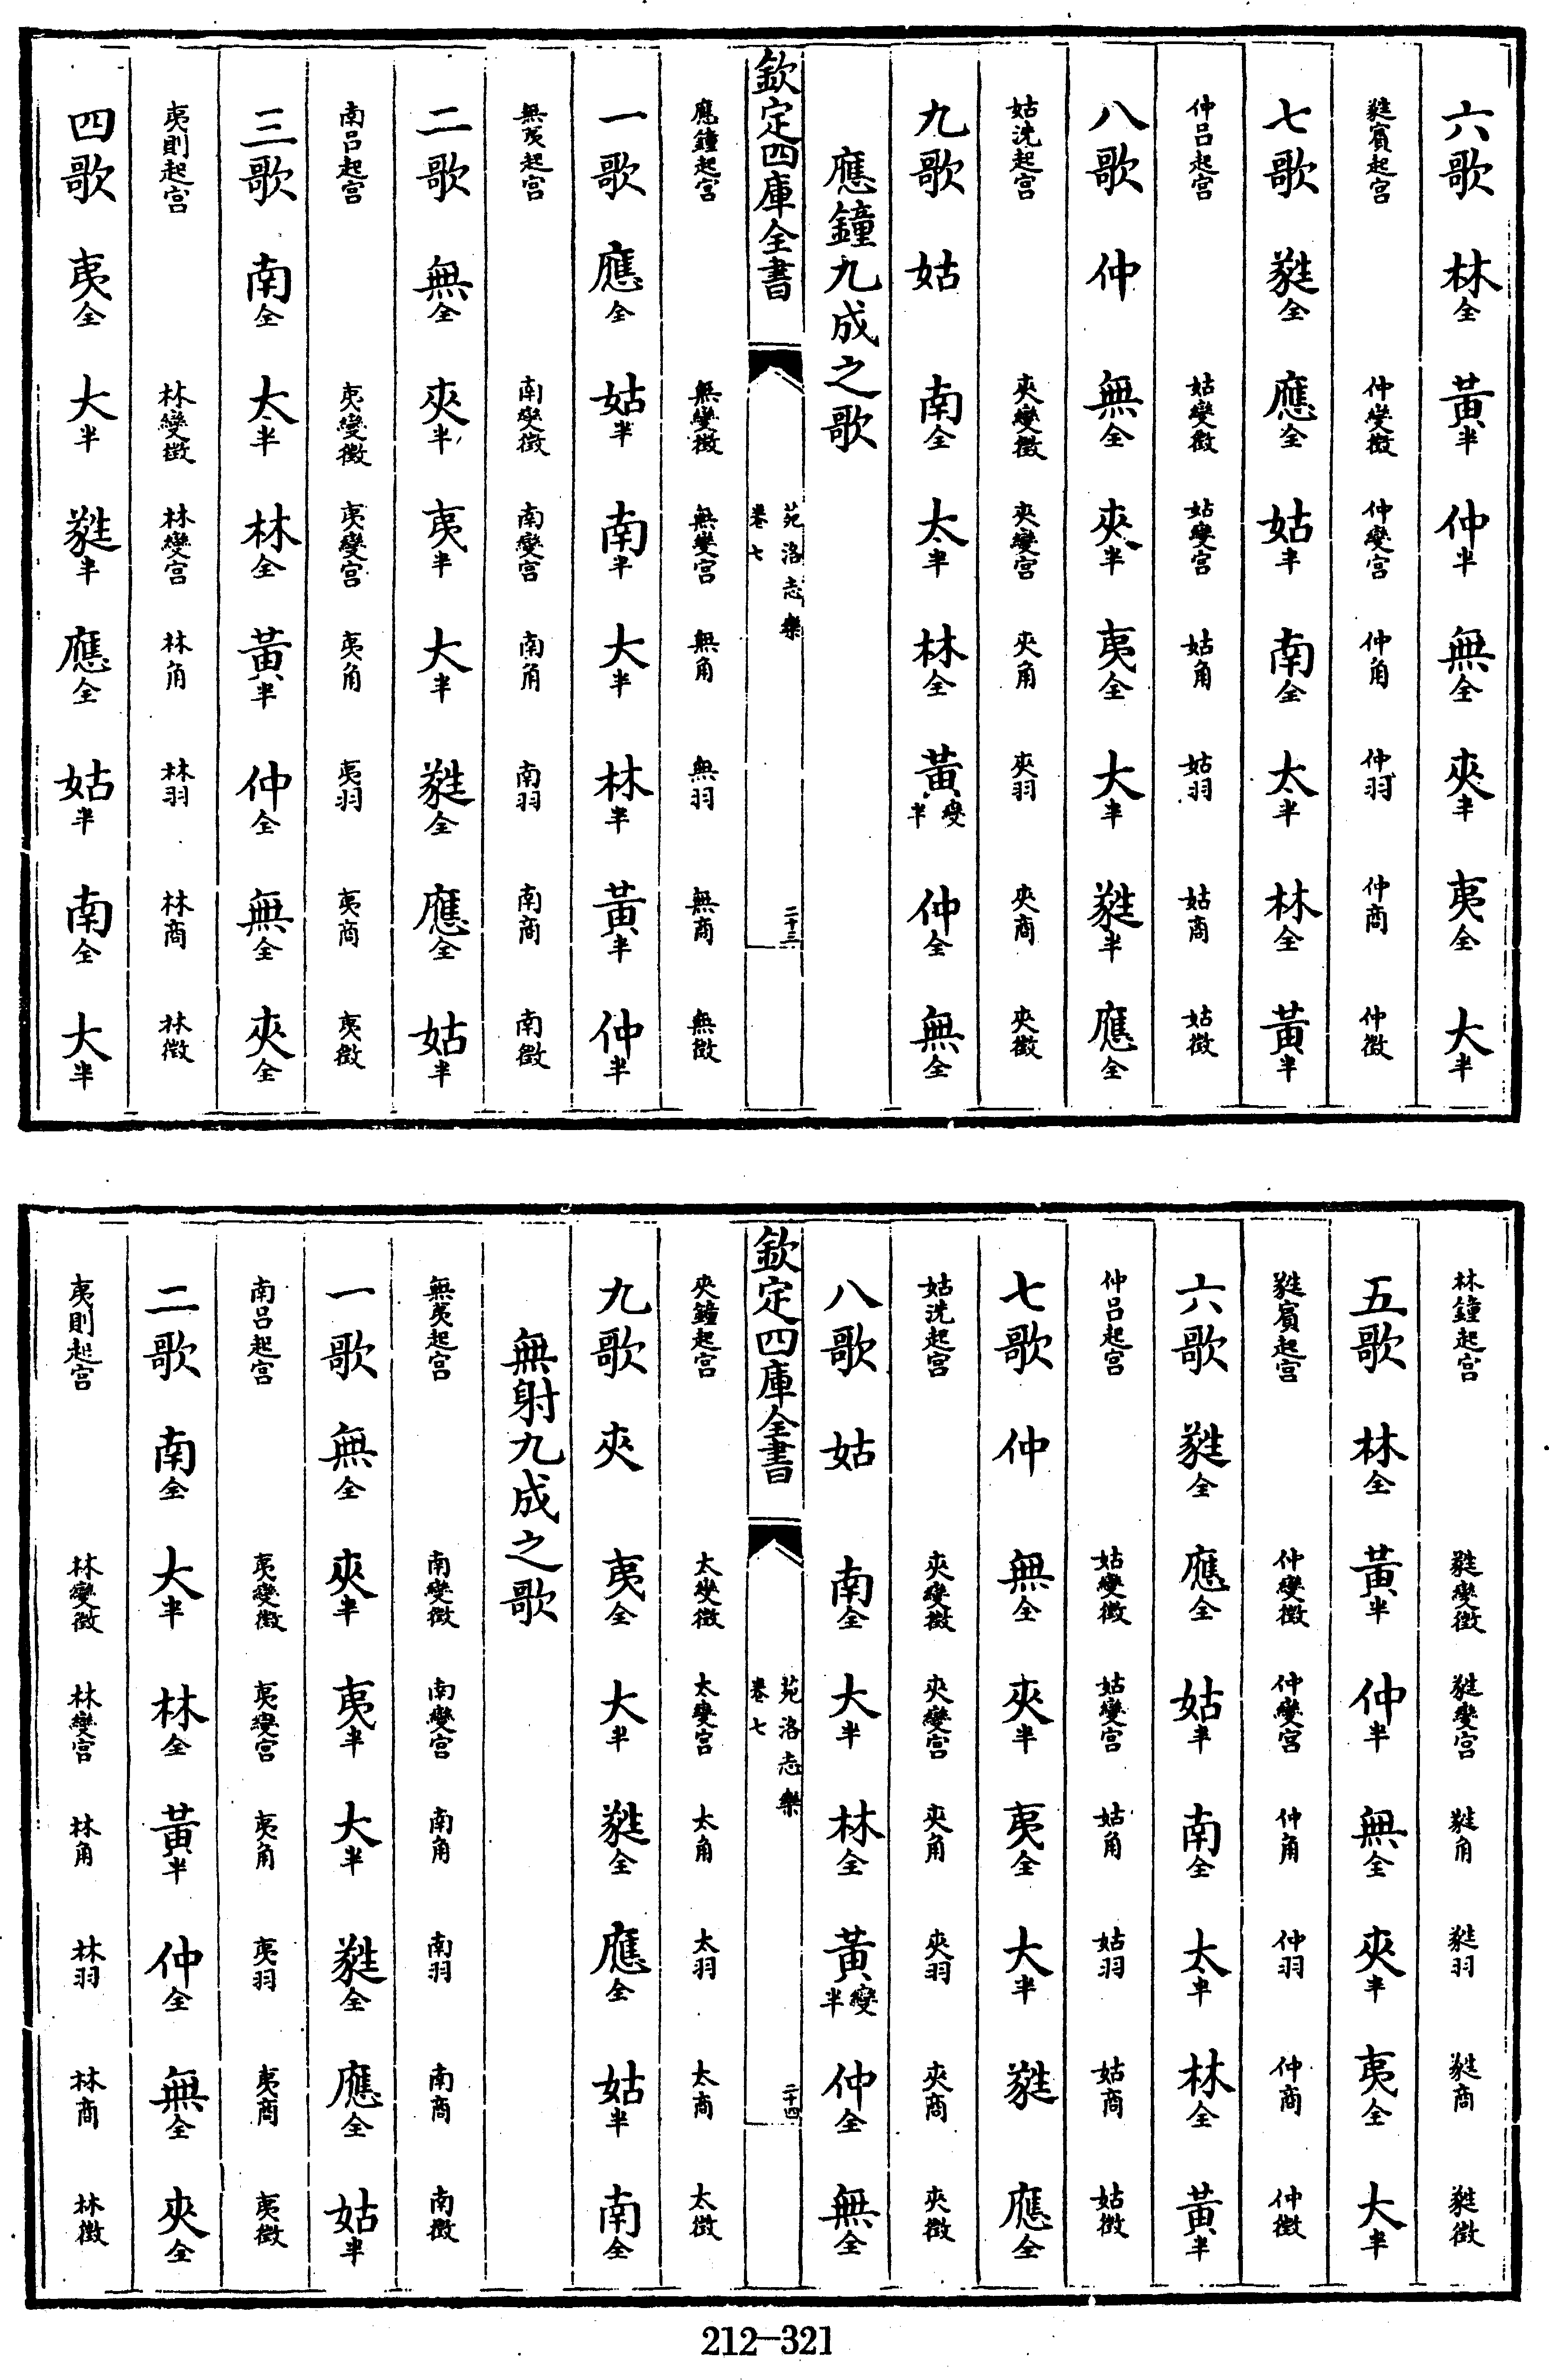 六歌 林全 黃半 仲半 無全 夾半 夷全 大半
蕤賓起宮 仲變徵 仲變宮 仲角 仲羽 仲商 仲徵
七歌 蕤全 應全 姑半 南全 太半 林全 黃半
仲呂起宮 姑變徵 姑變宮 姑角 姑羽 姑商 姑徵
八歌 仲 無全 夾半 夷全 大半 蕤半 應全
姑洗起宮 夾變徵 夾變宮 夾角 夾羽 夾商 夾徵
九歌 姑 南全 太半 林全 黃變半 仲全 無全
應鐘九成之歌
欽定四庫全書 苑洛志樂 卷七 二十三
應鐘起宮 無變徵 無變宮 無角 無羽 無商 無徵
一歌 應全 姑半 南半 大半 林半 黃半 仲半
無夷起宮 南變徵 南變宮 南角 南羽 南商 南徵
二歌 無全 夾半 夷半 大半 蕤全 應全 姑半
南呂起宮 夷變徵 夷變宮 夷角 夷羽 夷商 夷徵
三歌 南全 太半 林全 黃半 仲全 無全 夾全
夷則起宮 林變徵 林變宮 林角 林羽 林商 林徵
四歌 夷全 大半 蕤半 應全 姑半 南全 大半
林鐘起宮 蕤變徵 蕤變宮 蕤角 蕤羽 蕤商 蕤徵
五歌 林全 黃半 仲半 無全 夾半 夷全 大半
蕤賓起宮 仲變徵 仲變宮 仲角 仲羽 仲商 仲徵
六歌 蕤全 應全 姑半 南全 太半 林全 黃半
仲呂起宮 姑變徵 姑變宮 姑角 姑羽 姑商 姑徵
七歌 仲 無全 夾半 夷全 大半 蕤 應全
姑洗起宮 夾變徵 夾變宮 夾角 夾羽 夾商 夾徵
八歌 姑 南全 大半 林全 黃變半 仲全 無全
欽定四庫全書 苑洛志樂 卷七 二十四
夾鐘起宮 太變徵 太變宮 太角 太羽 太商 太徵
九歌 夾 夷全 大半 蕤全 應全 姑半 南全
無射九成之歌
無夷起宮 南變徵 南變宮 南角 南羽 南商 南徵
一歌 無全 夾半 夷半 大半 蕤全 應全 姑半
南呂起宮 夷變徵 夷變宮 夷角 夷羽 夷商 夷徵
二歌 南全 大半 林全 黃半 仲全 無全 夾全
夷則起宮 林變徵 林變宮 林角 林羽 林商 林徵
212-321